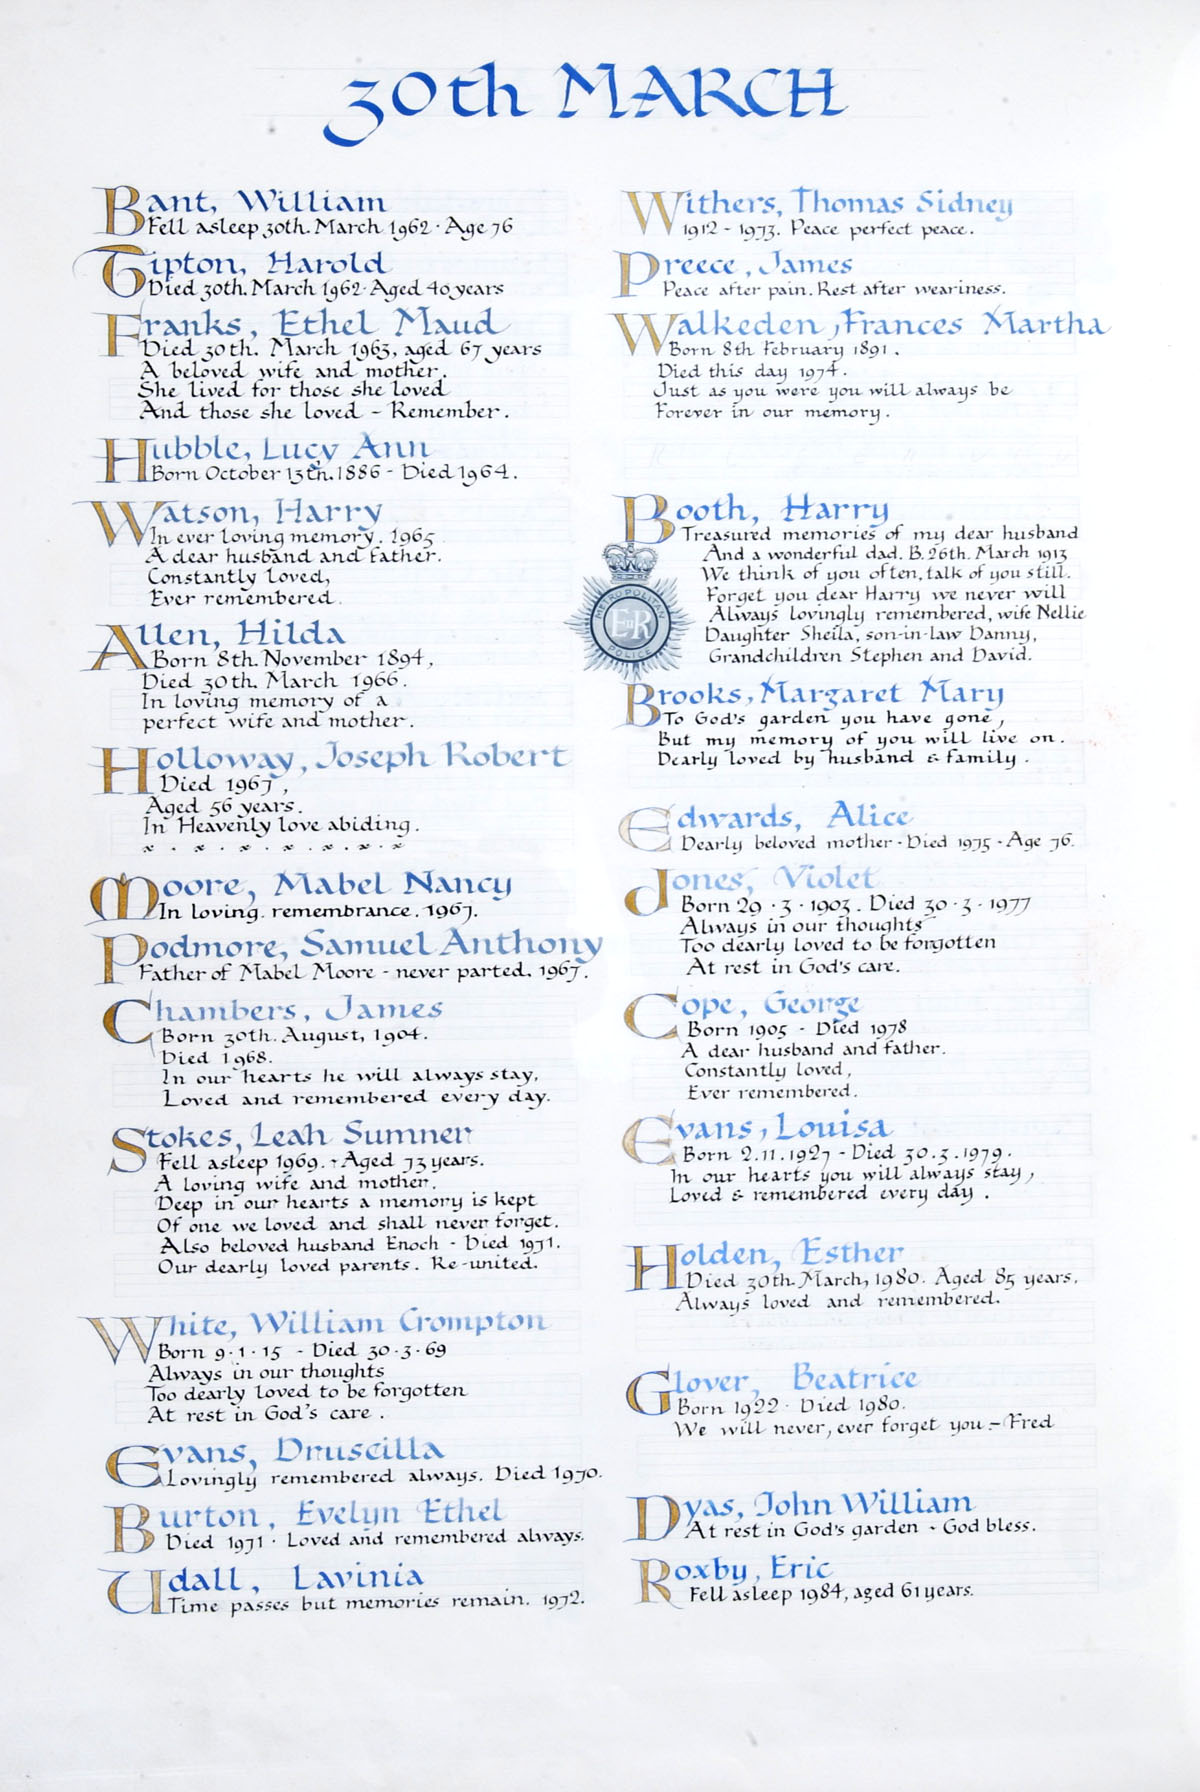 30th MARCH
Bant, William
Fell asleep 30th. March 1962 · Age 76
Tipton, Harold
Died 30th. March 1962 · Aged 40 years
Franks, Ethel Maud
Died 30th. March 1963, aged 67 years
A beloved wife and mother.
She lived for those she loved
And those she loved - Remember.
Hubble, Lucy Ann
Born October 13th. 1886 - Died 1964.
Watson, Harry
In ever loving memory. 1965
A dear husband and father.
Constantly loved,
Ever remembered.
Allen, Hilda
Born 8th. November 1894,
Died 30th. March 1966.
In loving memory of a
perfect wife and mother.
Holloway, Joseph Robert
Died 1967,
Aged 56 years.
In Heavenly love abiding.
Moore, Mabel Nancy
In loving remembrance. 1967.
Podmore, Samuel Anthony
Father of Mabel Moore - never parted. 1967.
Chambers, James
Born 30th. August, 1904.
Died 1968.
In our hearts he will always stay,
Loved and remembered every day.
Stokes, Leah Sumner
Fell asleep 1969. - Aged 73 years.
A loving wife and mother.
Deep in our hearts a memory is kept
Of one we loved and shall never forget.
Also beloved husband Enoch - Died 1971.
Our dearly loved parents. Re-united.
White, William Crompton
Born 9·1·15 - Died 30·3·69
Always in our thoughts
Too dearly loved to be forgotten
At rest in God's care.
Evans, Druscilla
Lovingly remembered always. Died 1970.
Burton, Evelyn Ethel
Died 1971 · Loved and remembered always.
Udall, Lavinia
Time passes but memories remain. 1972.
Withers, Thomas Sidney
1912 - 1973. Peace perfect peace.
Preece, James
Peace after pain. Rest after weariness.
Walkeden, Frances Martha
Born 8th February 1891.
Died this day 1974.
Just as you were you will always be
Forever in our memory.
Booth, Harry
Treasured memories of my dear husband
And a wonderful dad. B. 26th. March 1913
We think of you often, talk of you still.
Forget you dear Harry we never will
Always lovingly remembered, wife Nellie
Daughter Sheila, son-in-law Danny,
Grandchildren Stephen and David.
METROPOLITAN
EIIR
POLICE
Brooks, Margaret Mary
To God's garden you have gone,
But my memory of you will live on.
Dearly loved by husband & family.
Edwards, Alice
Dearly beloved mother - Died 1975 - Age 76.
Jones, Violet
Born 29·3·1903. Died 30·3·1977
Always in our thoughts
Too dearly loved to be forgotten
At rest in God's care.
Cope, George
Born 1905 - Died 1978
A dear husband and father.
Constantly loved,
Ever remembered.
Evans, Louisa
Born 2.11.1927 - Died 30.3.1979.
In our hearts you will always stay,
Loved & remembered every day.
Holden, Esther
Died 30th. March, 1980. Aged 85 years.
Always loved and remembered.
Glover, Beatrice
Born 1922 · Died 1980.
We will never, ever forget you - Fred
Dyas, John William
At rest in God's garden - God bless.
Roxby, Eric
Fell asleep 1984, aged 61 years.